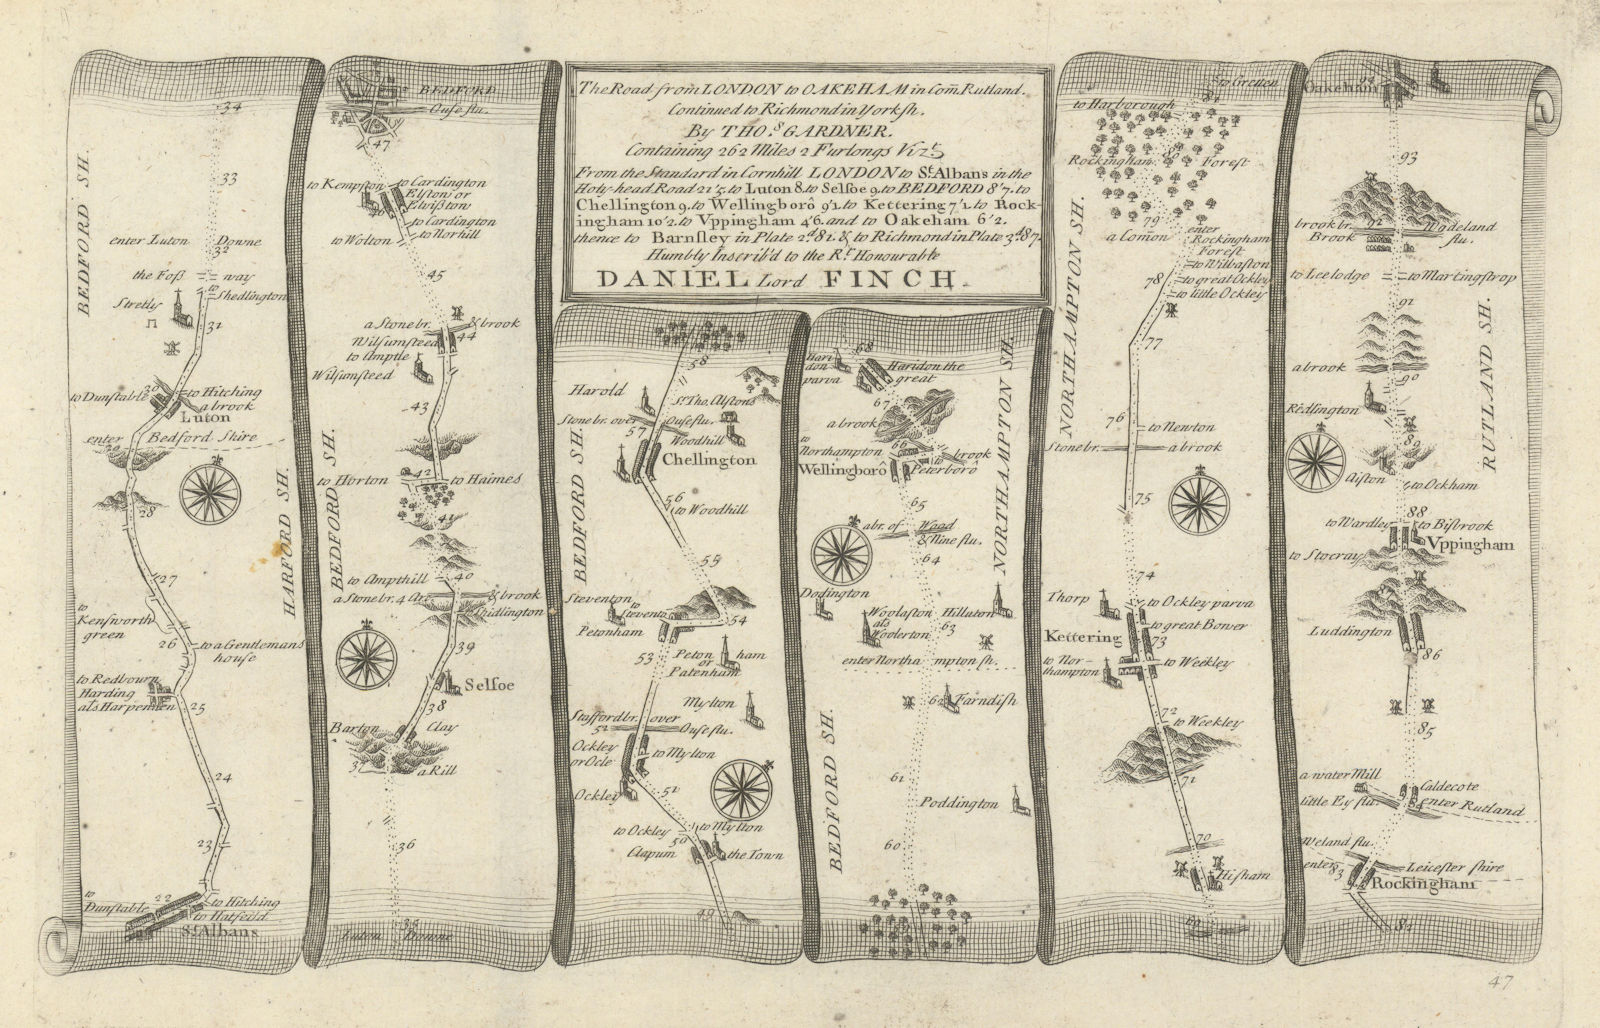 The Road from LONDON to OAKEHAM in Com. Rutland.
Continued to Richmond in Yorksh.
By THO.S GARDNER.
Containing 262 Miles 2 Furlongs Vizt.
From the Standard in Cornhill LONDON to St. Albans in the
Holy-head Road 21'5. to Luton 8. to Selsoe 9. to BEDFORD 8'7. to
Chellington 9. to Wellingborô 9'1. to Kettering 7'1. to Rock-
ingham 10'2. to Vppingham 4'6. and to Oakeham 6'2.
thence to Barnsley in Plate 2d. 81. & to Richmond in Plate 3d. 87.
Humbly Inscrib'd to the Rt. Honourable
DANIEL Lord FINCH.
34
33
BEDFORD SH.
enter Luton Downe
32
the Foss way
to Shedlington
Stretly
31
30
to Dunstable
to Hitching
a brook
Luton
enter Bedford Shire
29
28
HARFORD SH.
27
to Kensworth green
26
to a Gentlemans house
to Redbourn
Harding
als Harpenden
25
24
23
to Dunstable
22
to Hitching
to Hatfeild
St. Albans
BEDFORD
Ouse flu.
47
to Kempston
to Cardington
Elston or
Elviston
46
to Cardington
to Norhill
to Wolton
45
a Stone br. & brook
Wilsumsteed
44
to Amptle
Wilsumsteed
43
42
to Horton
to Haimes
BEDFORD SH.
41
to Ampthill
40
a Stone br. 4 Arc. & brook
to Shidlington
39
Selsoe
38
Barton Clay
37
a Rill
36
35
Luton Downe
58
Harold
Sr. Tho. Alstons
Stone br. over Ouse flu.
57
Woodhill
Chellington
BEDFORD SH.
56
to Woodhill
55
Steventon
to Stevento
54
Petonham
53
Peton ham
or
Patenham
Mylton
Stafford br. over
52
Ouse flu.
Ockley
or Ocle
to Mylton
Ockley
51
to Ockley
to Mylton
50
Clapum
the Town
49
68
Haridon parva
Haridon the great
67
a brook
NORTHAMPTON SH.
to Northampton
66
a brook
Wellingborô
to Peterborô
65
a br. of Wood
& Nine flu.
64
Dodington
Woolaston
als
Woolerton
Hillaton
63
enter Northa mpton sh.
62
Farndish
BEDFORD SH.
61
Poddington
60
to Gretton
81
to Harborough
80
Rockingham Forest
79
a Comon
enter
Rockingham
Forest
to Wilbaston
78
to great Ockley
to little Ockley
77
NORTHAMPTON SH.
76
to Newton
Stone br. a brook
75
74
Thorp
to Ockley parva
to great Bower
Kettering
73
to Northampton
to Weekley
72
to Weekley
71
70
Hisham
69
Oakeham
94
93
92
brook br.
Brook
Wadeland flu.
to Leelodge
to Martingstrop
91
RUTLAND SH.
a brook
90
Redlington
89
Aiston
to Ockham
88
to Wardley
to Bisbrook
Vppingham
to Stocray
87
Luddington
86
85
a water Mill
Caldecote
little Ey flu.
84
enter Rutland
Weland flu.
enter
83
Leicester shire
Rockingham
82
47